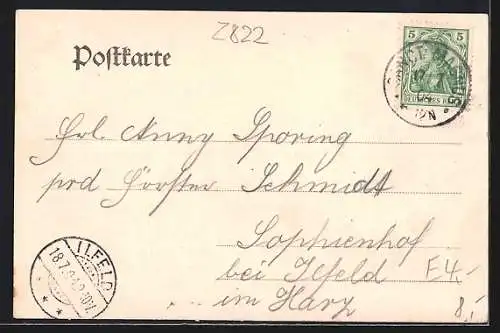 Z822
Postkarte
5 5
DEUTSCHES REICH
12N
Frl. Anny Sporing
prd Förster Schmidt
Sophienhof
bei Ilfeld E4-
im Harz
8,-
ILFELD
18.7.